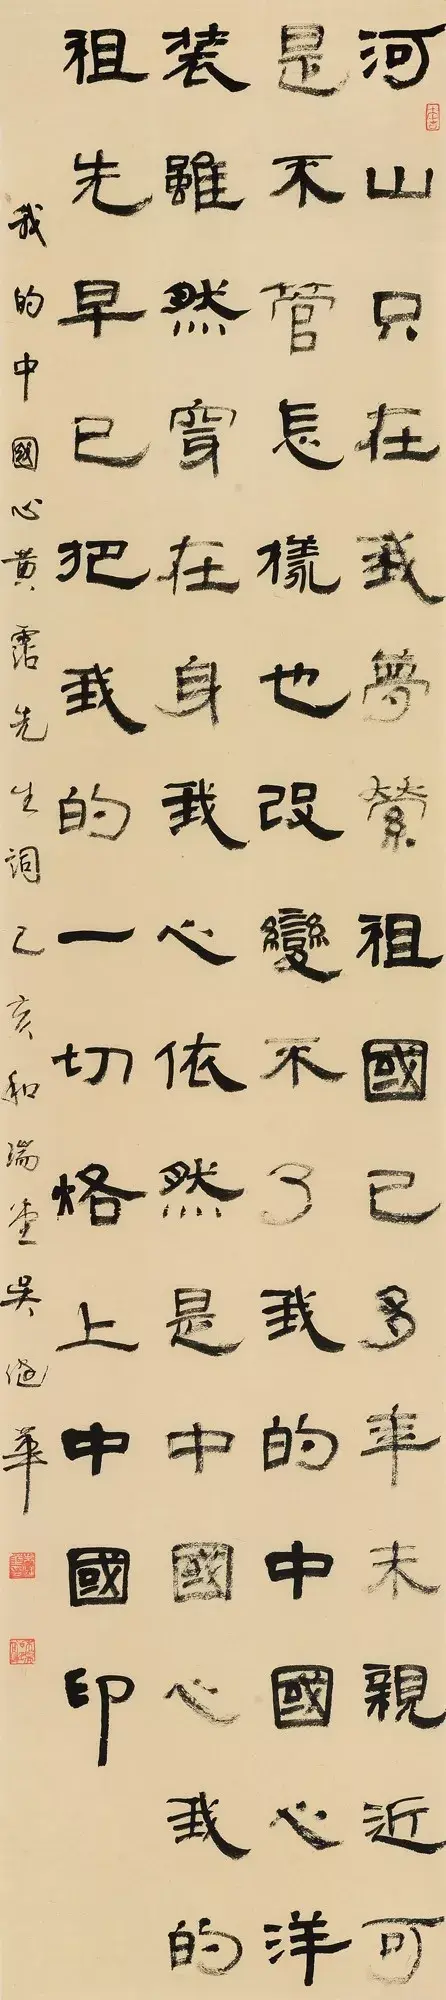 河山只在我夢縈祖國已多年未親近可
是不管怎樣也改變不了我的中國心洋
裝雖然穿在身我心依然是中國心我的
祖先早已把我的一切烙上中國印
我的中國心黃霑先生詞己亥和瑞堂吳继華